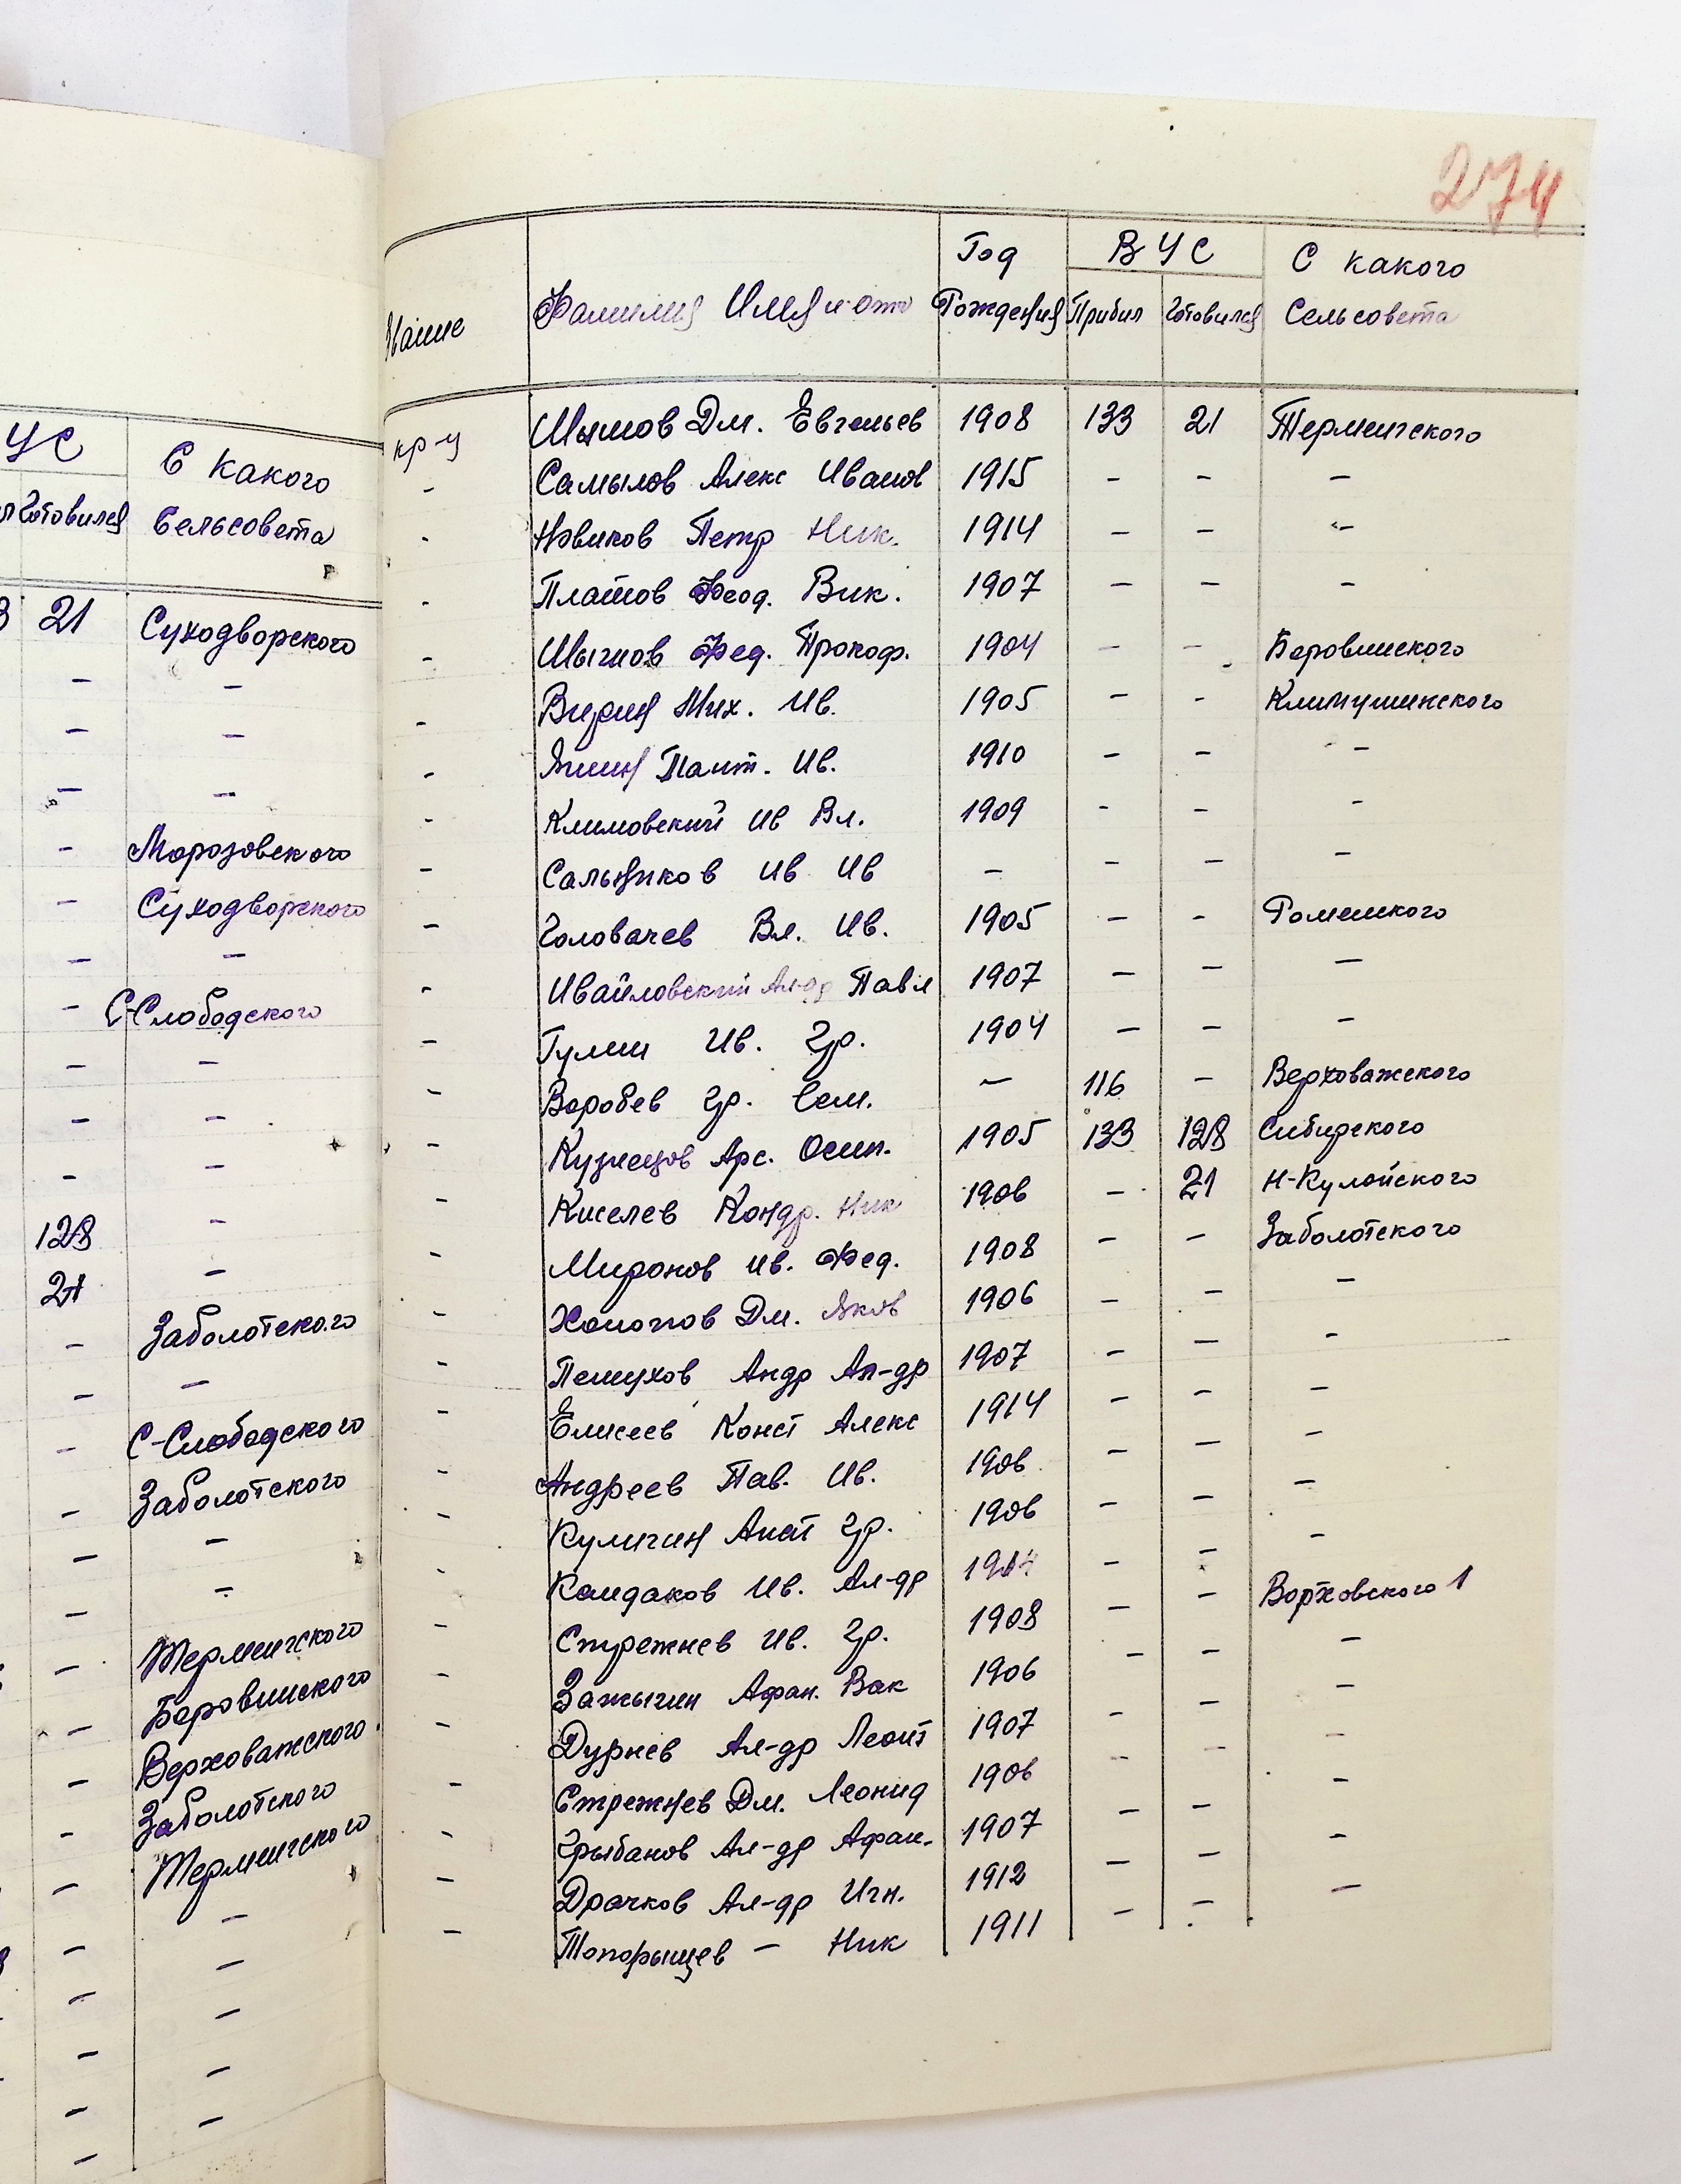 274
УС
С какого
Готовился Сельсовета
21 Суходворского
- -
- -
- -
- Морозовского
- Суходворского
- -
- С-Слободского
- -
- -
- -
128 -
21 -
- Заболотского
- -
- С-Слободского
- Заболотского
- -
- -
- Терменгского
- Боровинского
- Верховажского
- Заболотского
- Терменгского
- -
- -
- -
- -
- -
Фамилия Имя и отч Год Рождения ВУС Прибыл Готовился С какого Сельсовета
кр-ц Шымов Дм. Евгеньев 1908 133 21 Терменгского
- Самылов Алекс Иванов 1915 - - -
- Новиков Петр Ник. 1914 - - -
- Платов Феод. Вик. 1907 - - -
- Фед. Прокоф. 1904 - - Боровинского
- Мих. Ив. 1905 - - Климушинского
- Пант. Ив. 1910 - - -
- Климовский Ив Вл. 1909 - - -
- Сальников Ив Ив - - - -
- Головачев Вл. Ив. 1905 - - Роменского
- Ивайловский Ал-др Павл 1907 - - -
- Гулин Ив. Гр. 1904 - - -
- Воробев Гр. Сем. - 116 - Верховажского
- Кузнецов Арс. Осип. 1905 133 128 Сибирского
- Киселев Кондр. Ник 1906 - 21 Н-Кулойского
- Миронов Ив. Фед. 1908 - - Заболотского
- Дм. Яков 1906 - - -
- Петухов Андр Ал-др 1907 - - -
- Елисеев Конст Алекс 1914 - - -
- Андреев Пав. Ив. 1906 - - -
- Кулигин Анат Гр. 1906 - - -
- Кондаков Ив. Ал-др 1914 - - -
- Стрежнев Ив. Гр. 1908 - - Ворховского 1
- Зажигин Афан. Вак 1906 - - -
- Дурнев Ал-др Леонт 1907 - - -
- Стрежнев Дм. Леонид 1906 - - -
- Грыбанов Ал-др Афан. 1907 - - -
- Драчков Ал-др Игн. 1912 - - -
- Топорыщев - Ник 1911 - - -